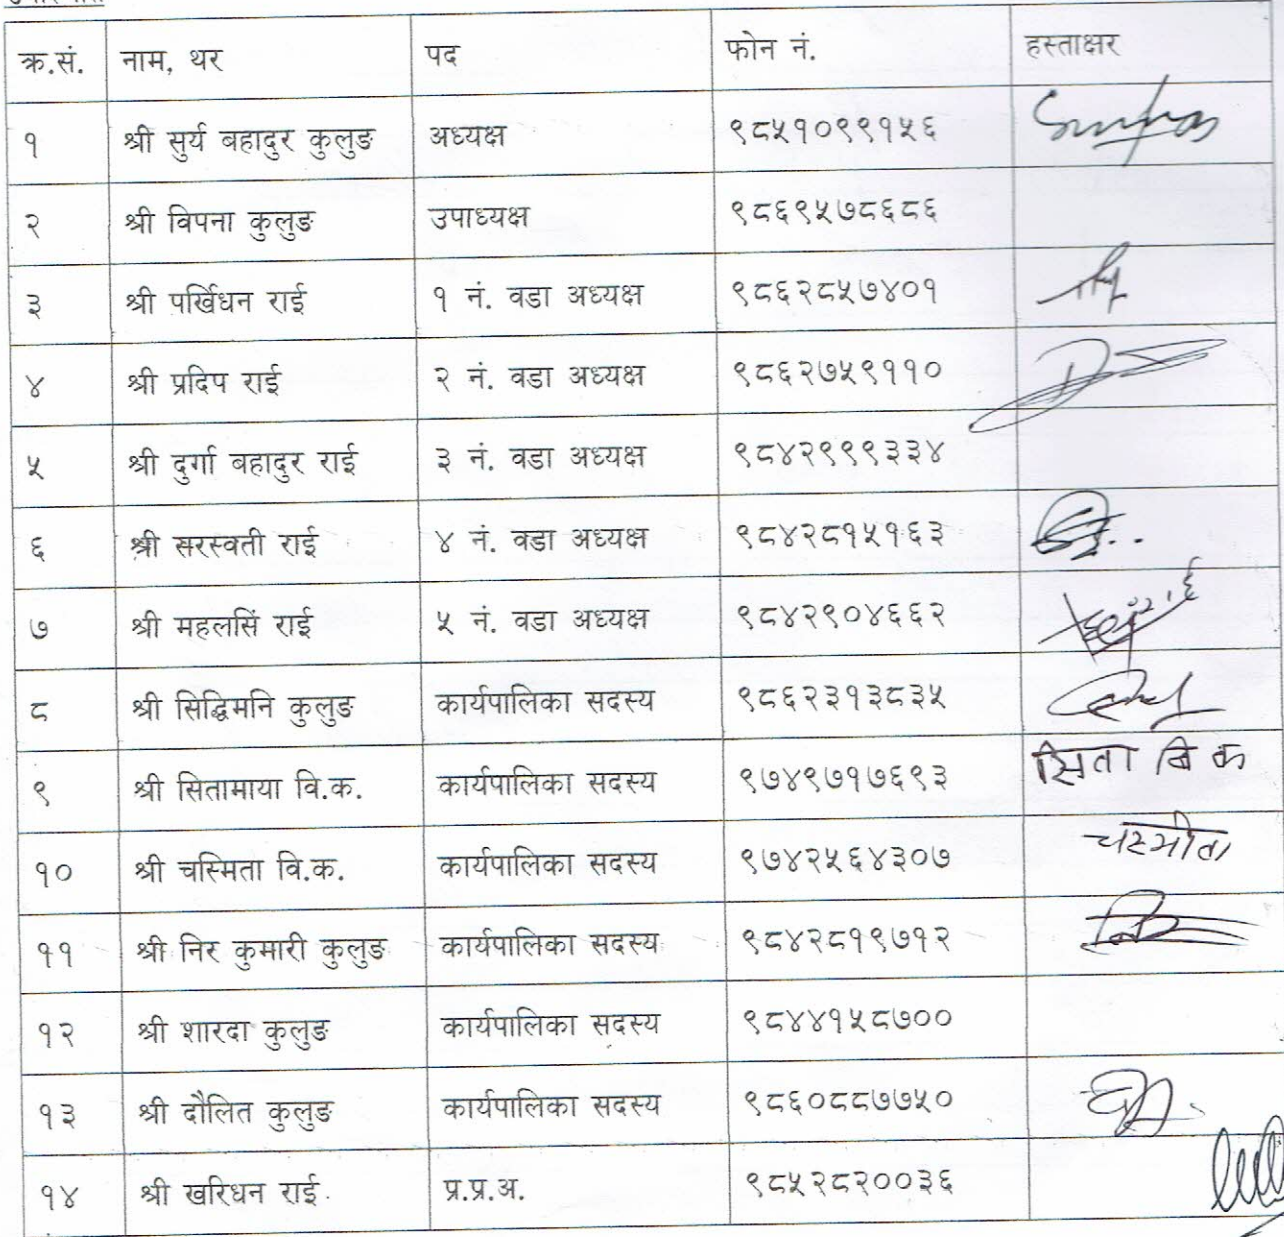 क्र.सं. नाम, थर पद फोन नं. हस्ताक्षर
१ श्री सुर्य बहादुर कुलुङ अध्यक्ष ९८५१०९९१५६
२ श्री विपना कुलुङ उपाध्यक्ष ९८६९५७८६८६
३ श्री पर्खिधन राई १ नं. वडा अध्यक्ष ९८६२८५७४०१
४ श्री प्रदिप राई २ नं. वडा अध्यक्ष ९८६२७५९११०
५ श्री दुर्गा बहादुर राई ३ नं. वडा अध्यक्ष ९८४२९९९३३४
६ श्री सरस्वती राई ४ नं. वडा अध्यक्ष ९८४२८१५१६३
७ श्री महलसिं राई ५ नं. वडा अध्यक्ष ९८४२९०४६६२
८ श्री सिद्धिमनि कुलुङ कार्यपालिका सदस्य ९८६२३१३८३५
९ श्री सितामाया वि.क. कार्यपालिका सदस्य ९७४९७१७६९३ सिता बि क
१० श्री चस्मिता वि.क. कार्यपालिका सदस्य ९७४२५६४३०७ चस्मीता
११ श्री निर कुमारी कुलुङ कार्यपालिका सदस्य ९८४२८१९७१२
१२ श्री शारदा कुलुङ कार्यपालिका सदस्य ९८४४१५८७००
१३ श्री दौलित कुलुङ कार्यपालिका सदस्य ९८६०८८७७५०
१४ श्री खरिधन राई प्र.प्र.अ. ९८५२८२००३६